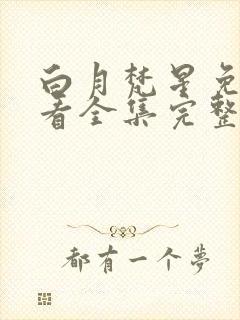 白月梵星免
看全集完整
都有一个梦